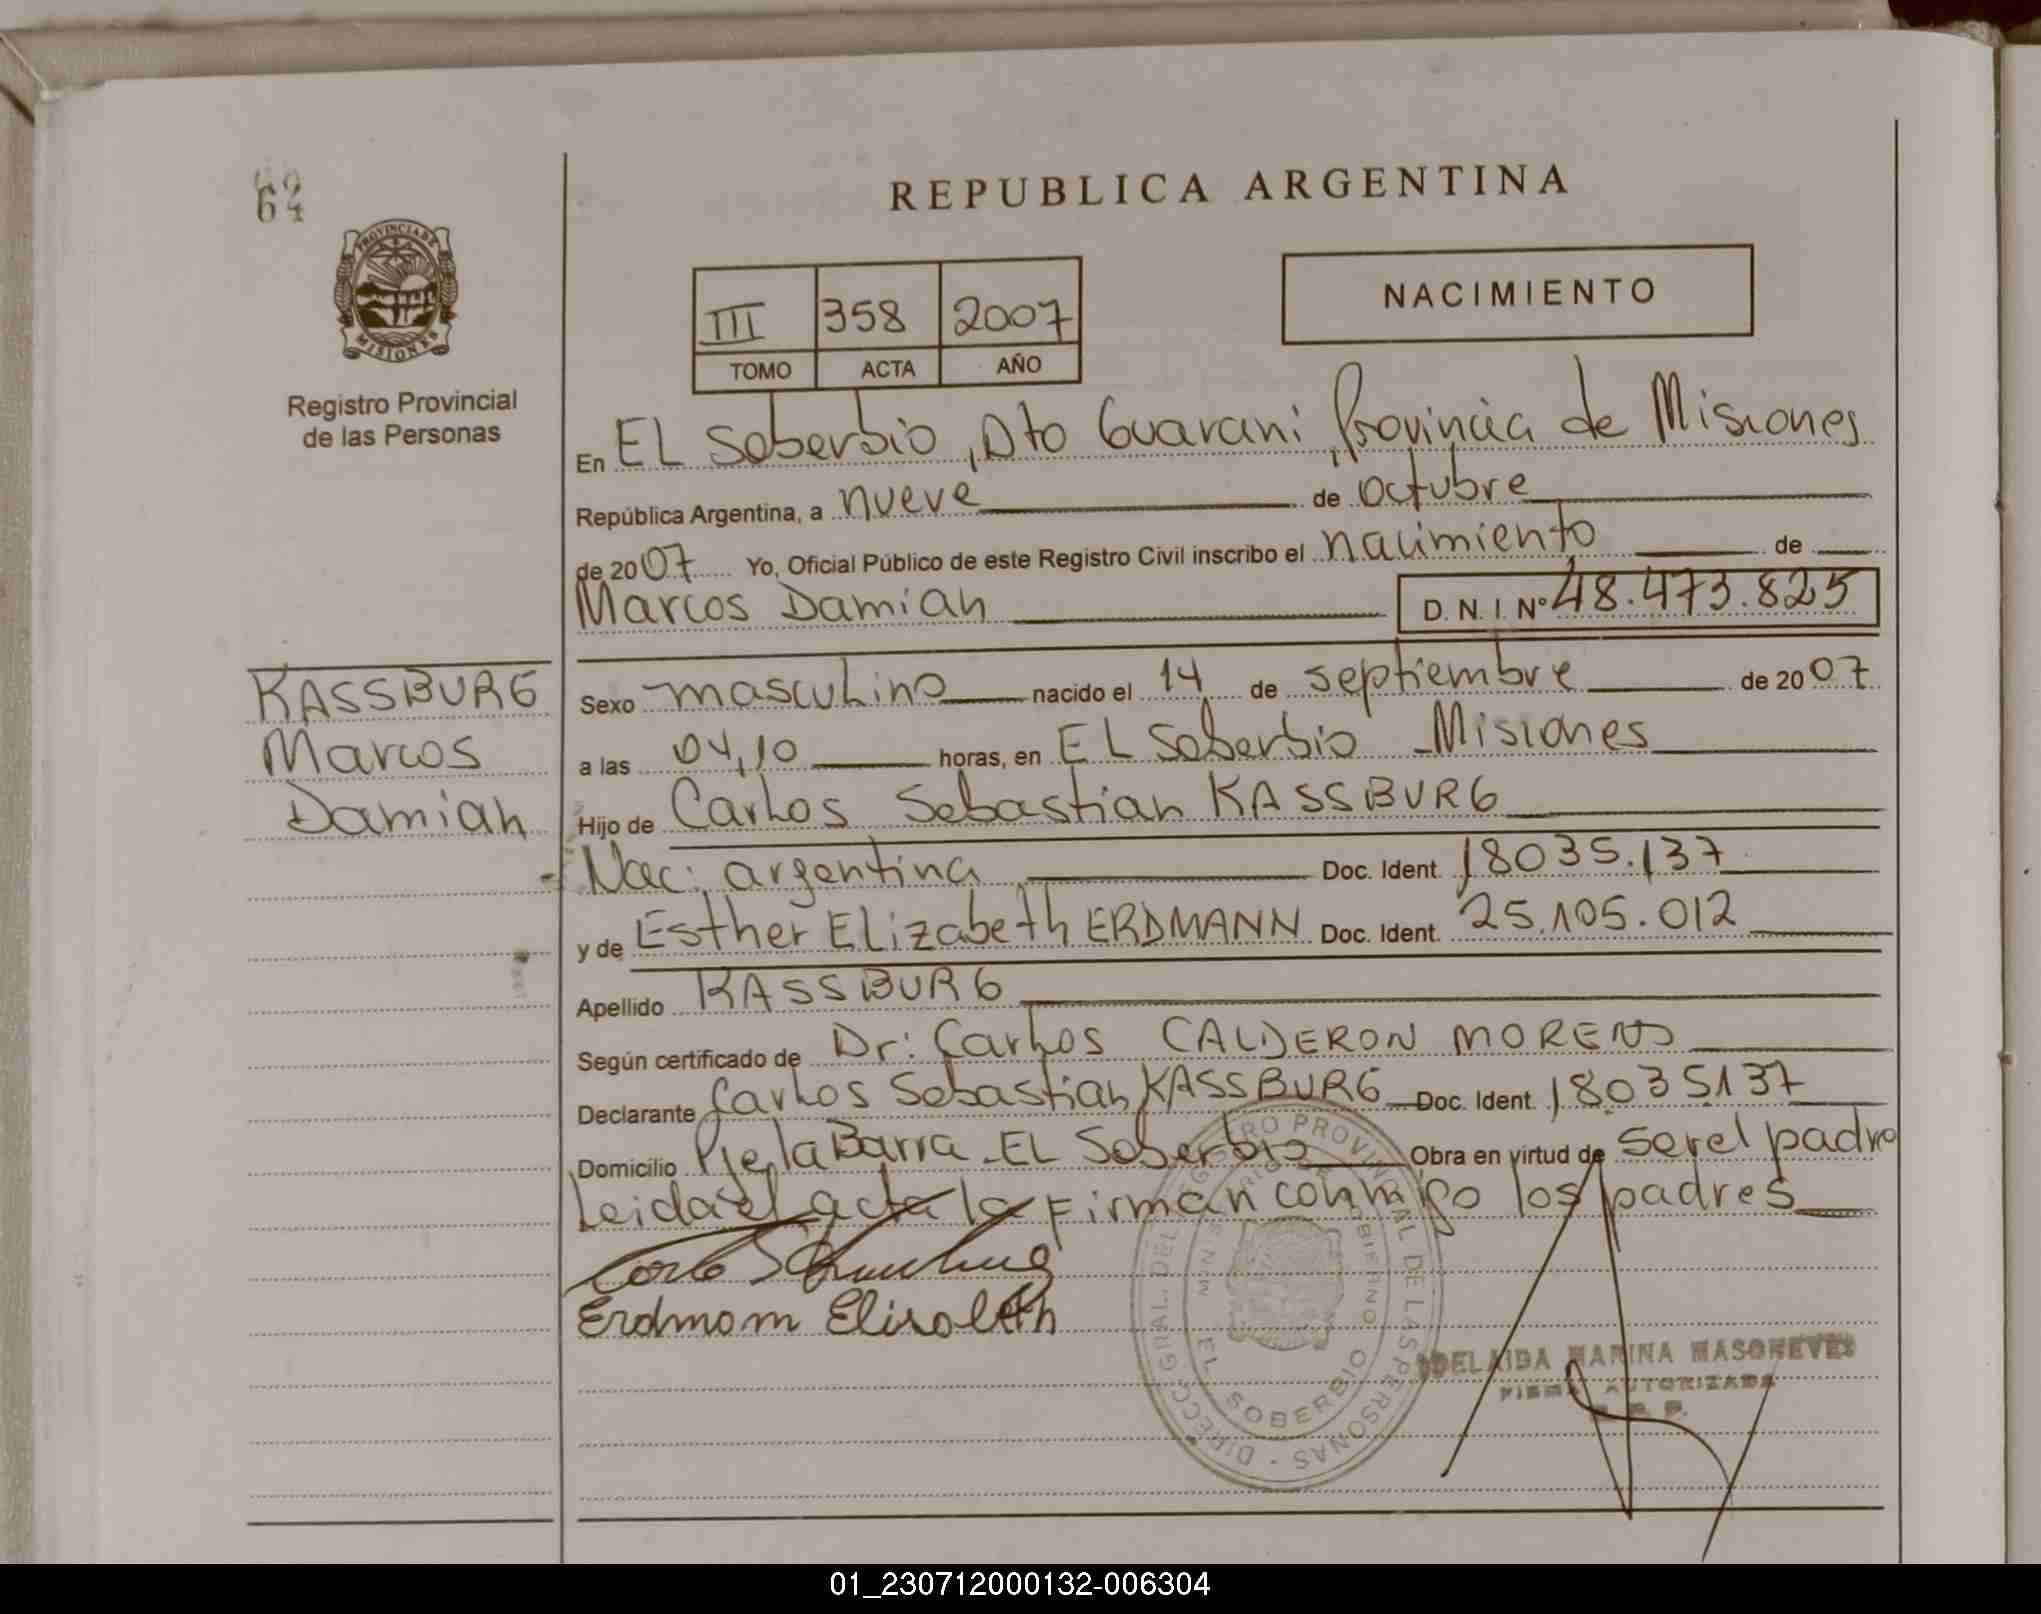 64
REPUBLICA ARGENTINA
PROVINCIA DE
MISIONES
Registro Provincial
de las Personas
III 358 2007
TOMO ACTA AÑO
NACIMIENTO
En EL Soberbio, Dto Guarani, Provincia de Misiones
República Argentina, a nueve de octubre
de 2007 Yo, Oficial Público de este Registro Civil inscribo el nacimiento de
Marcos Damian D. N. I. Nº 48.473.825
KASSBURG
Marcos
Damian
Sexo masculino nacido el 14 de septiembre de 2007
a las 04,10 horas, en EL Soberbio - Misiones
Hijo de Carlos Sebastian KASSBURG
Nac: argentina Doc. Ident. 18035.137
y de Esther Elizabeth ERDMANN Doc. Ident. 25.105.012
Apellido KASSBURG
Según certificado de Dr: Carlos CALDERON MORENO
Declarante Carlos Sebastian KASSBURG Doc. Ident. 18035137
Domicilio Pje la Barra - EL Soberbio Obra en virtud de ser el padre
Leida el acta la firman conmigo los padres
Erdmann Elisabeth
DIRECC. GRAL. DEL REGISTRO PROVINCIAL DE LAS PERSONAS -
EL SOBERBIO
ADELAIDA MARINA MASONEVES
FIRMA AUTORIZADA
01_230712000132-006304